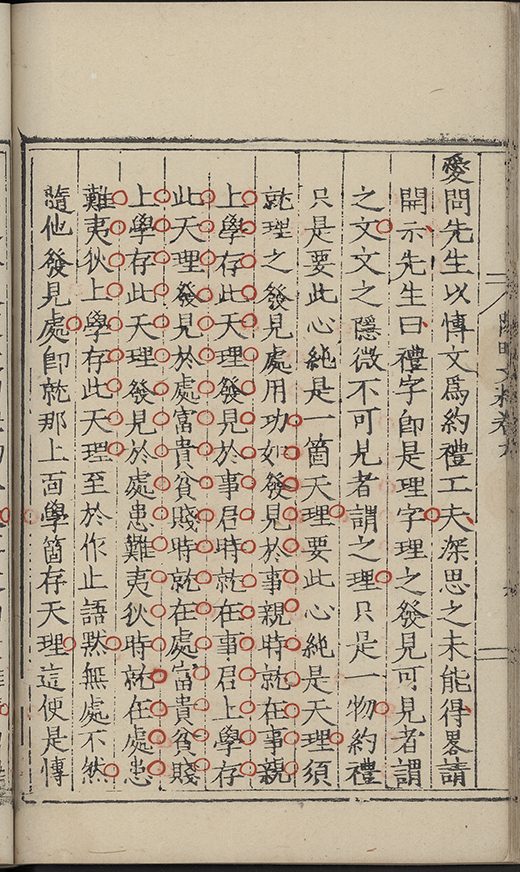 愛問先生以慱文爲約禮工夫深思之未能得畧請
開示先生曰禮字即是理字理之發見可見者謂
之文文之隱微不可見者謂之理只是一物約禮
只是要此心純是一箇天理要此心純是天理須
就理之發見處用功如發見於事親時就在事親
上學存此天理發見於事君時就在事君上學存
此天理發見於處富貴貧賤時就在處富貴貧賤
上學存此天理發見於處患難夷狄時就在處患
難夷狄上學存此天理至於作止語默無處不然
隨他發見處即就那上面學箇存天理這便是慱